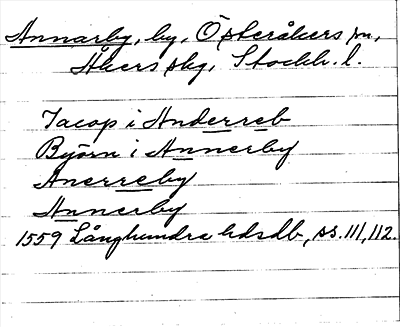 Annarby, by, Österåkers sn,
Åkers skg, Stockh. l.
Jacop i Anderreb
Byörn i Annerby
Anerreby
Annerby
1559 Långhundra hdsdb, ss. 111, 112.